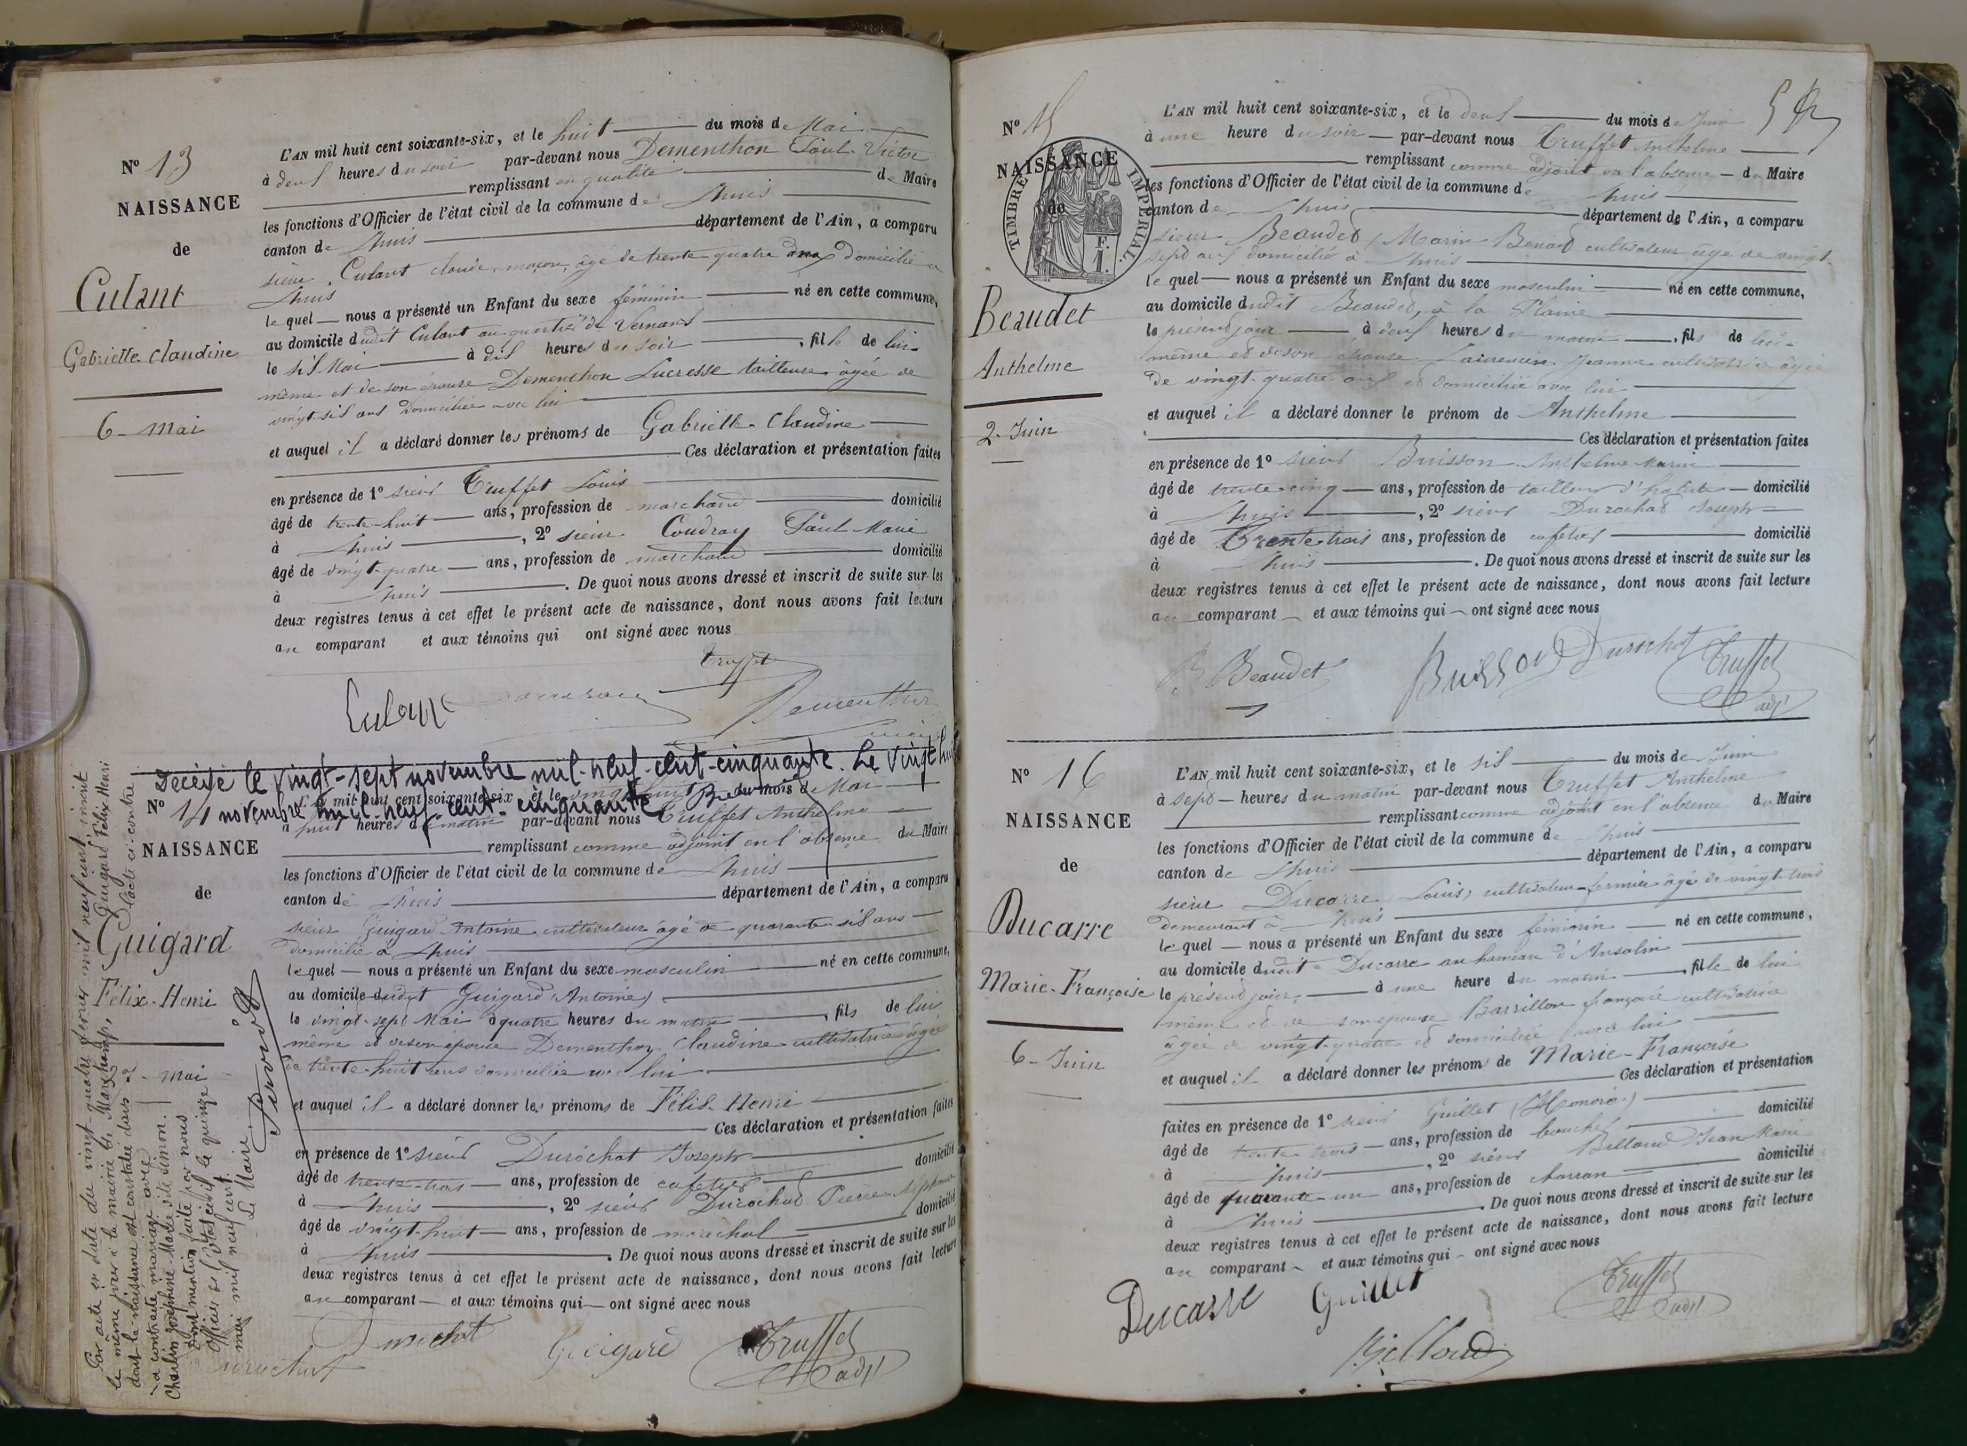 N° 13
NAISSANCE
de
Culant
Gabrielle Claudine
6 - mai
L'AN mil huit cent soixante-six, et le huit du mois de Mai
à deux heures du soir par-devant nous Dementhon Paul Victor
remplissant en qualité de Maire
les fonctions d'Officier de l'état civil de la commune de Lhuis
canton de Lhuis département de l'Ain, a comparu
sieur Culant Claude, maçon, âgé de trente quatre ans domicilié à
Lhuis
le quel nous a présenté un Enfant du sexe féminin né en cette commune,
au domicile dudit Culant au quartier de Vernans
le six Mai à dix heures du soir, fille de lui-
même et de son épouse Dementhon Lucresse tailleuse âgée de
vingt-six ans domiciliée avec lui
et auquel il a déclaré donner les prénoms de Gabrielle-Claudine
Ces déclaration et présentation faites
en présence de 1° sieur Truffet Louis
âgé de trente-huit ans, profession de marchand domicilié
à Lhuis, 2° sieur Coudray Paul Marie
âgé de vingt-quatre ans, profession de marchand domicilié
à Lhuis. De quoi nous avons dressé et inscrit de suite sur les
deux registres tenus à cet effet le présent acte de naissance, dont nous avons fait lecture
au comparant et aux témoins qui ont signé avec nous
Truffet
Culant
Dementhon
Décédé le vingt-sept novembre mil-neuf-cent-cinquante. Le vingt huit
novembre mil-neuf-cent-cinquante
N° 14
NAISSANCE
de
Guigard
Félix-Henri
mai
L'AN mil huit cent soixante-six et le vingt huit du mois de Mai
à huit heures du matin par-devant nous Truffet Anthelme
remplissant comme adjoint en l'absence du Maire
les fonctions d'Officier de l'état civil de la commune de Lhuis
canton de Lhuis département de l'Ain, a comparu
sieur Guigard Antoine cultivateur âgé de quarante six ans
domicilié à Lhuis
le quel nous a présenté un Enfant du sexe masculin né en cette commune,
au domicile dudit Guigard (Antoine)
le vingt-sept Mai à quatre heures du matin, fils de lui
même et de son épouse Dementhon Claudine cultivatrice âgée
de trente-huit ans domiciliée avec lui
et auquel il a déclaré donner les prénoms de Félix-Henri
Ces déclaration et présentation faites
en présence de 1° sieur Durochat Joseph
âgé de trente-trois ans, profession de cafetier domicilié
à Lhuis, 2° sieur Durochat Pierre
âgé de vingt-huit ans, profession de maréchal domicilié
à Lhuis. De quoi nous avons dressé et inscrit de suite sur les
deux registres tenus à cet effet le présent acte de naissance, dont nous avons fait lecture
au comparant et aux témoins qui ont signé avec nous
Durochat Guigard Truffet adjt
Durochat
Par acte en date du vingt quatre février mil neuf cent inscrit
le même jour à la mairie de Guigard Félix Henri
dont la naissance est constatée dans l'acte ci-contre
a contracté mariage avec
Charlin Joséphine Marie dite Simon.
dont mention faite par nous
officier de l'état civil le quinze
mai mil neuf cent.
Le Maire,
N° 15
NAISSANCE
de
TIMBRE IMPÉRIAL
Beaudet
Anthelme
2 - Juin
L'AN mil huit cent soixante-six, et le deux du mois de Juin
à une heure du soir par-devant nous Truffet Anthelme
remplissant comme adjoint en l'absence du Maire
les fonctions d'Officier de l'état civil de la commune de Lhuis
canton de Lhuis département de l'Ain, a comparu
sieur Beaudet (Marin Benoit) cultivateur âgé de vingt-
sept ans domicilié à Lhuis
le quel nous a présenté un Enfant du sexe masculin né en cette commune,
au domicile dudit Beaudet, à la Plaine
le présent jour à deux heures du matin, fils de lui-
même et de son épouse Laurencin Jeanne cultivatrice âgée
de vingt-quatre ans et domiciliée avec lui
et auquel il a déclaré donner le prénom de Anthelme
Ces déclaration et présentation faites
en présence de 1° sieur Buisson Anthelme Marin
âgé de trente-cinq ans, profession de tailleur d'habits domicilié
à Lhuis, 2° sieur Durochat Joseph
âgé de Trente-trois ans, profession de cafetier domicilié
à Lhuis. De quoi nous avons dressé et inscrit de suite sur les
deux registres tenus à cet effet le présent acte de naissance, dont nous avons fait lecture
au comparant et aux témoins qui ont signé avec nous
B Beaudet Buisson Durochat Truffet
adjt
N° 16
NAISSANCE
de
Ducarre
Marie-Françoise
6 - Juin
L'AN mil huit cent soixante-six, et le six du mois de Juin
à sept heures du matin par-devant nous Truffet Anthelme
remplissant comme adjoint en l'absence du Maire
les fonctions d'Officier de l'état civil de la commune de Lhuis
canton de Lhuis département de l'Ain, a comparu
sieur Ducarre (Louis) cultivateur-fermier âgé de vingt-trois
demeurant à Lhuis
le quel nous a présenté un Enfant du sexe féminin né en cette commune,
au domicile dudit Ducarre au hameau d'Ansolin
le présent jour, à une heure du matin, fille de lui
même et de son épouse Barrillon françoise cultivatrice
âgée de vingt-quatre et domiciliée avec lui
et auquel il a déclaré donner les prénoms de Marie-Françoise
Ces déclaration et présentation
faites en présence de 1° sieur Guillet (Honoré)
âgé de trente trois ans, profession de boucher domicilié
à Lhuis, 2° sieur Billoud Jean Marie
âgé de quarante-un ans, profession de charron domicilié
à Lhuis. De quoi nous avons dressé et inscrit de suite sur les
deux registres tenus à cet effet le présent acte de naissance, dont nous avons fait lecture
au comparant et aux témoins qui ont signé avec nous
Ducarre Guillet Truffet
adjt
Billoud